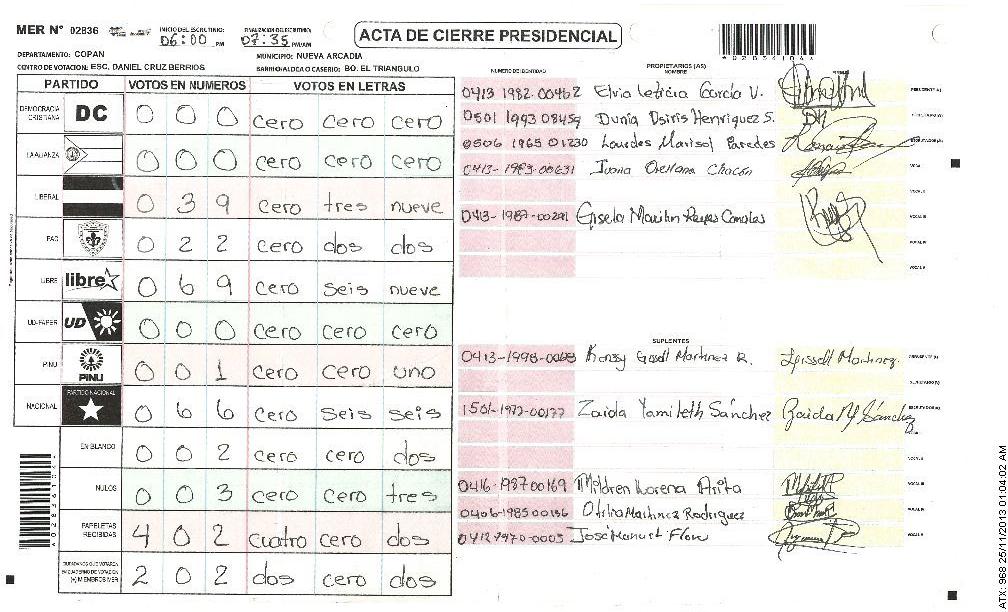 MER Nº 02836
INICIO DEL ESCRUTINIO: 06:00 PM
FINALIZACION DEL ESCRUTINIO: 07:35 PM/AM
ACTA DE CIERRE PRESIDENCIAL
*02836104*
DEPARTAMENTO: COPAN
MUNICIPIO: NUEVA ARCADIA
CENTRO DE VOTACION: ESC. DANIEL CRUZ BERRIOS
BARRIO/ALDEA O CASERIO: BO. EL TRIANGULO
PARTIDO VOTOS EN NUMEROS VOTOS EN LETRAS
DEMOCRACIA CRISTIANA DC 0 0 0 cero cero cero
LA ALIANZA 0 0 0 cero cero cero
LIBERAL 0 3 9 cero tres nueve
PAC 0 2 2 cero dos dos
LIBRE libre 0 6 9 cero seis nueve
UD-FAPER UD 0 0 0 cero cero cero
PINU PINU 0 0 1 cero cero uno
NACIONAL PARTIDO NACIONAL 0 6 6 cero seis seis
EN BLANCO 0 0 2 cero cero dos
NULOS 0 0 3 cero cero tres
PAPELETAS RECIBIDAS 4 0 2 cuatro cero dos
CIUDADANOS QUE VOTARON EN CUADERNO DE VOTACION (+) MIEMBROS MER 2 0 2 dos cero dos
NUMERO DE IDENTIDAD PROPIETARIOS (AS) NOMBRE FIRMA
0413 1982-00462 Elvia Leticia García V. PRESIDENTE (A)
0501 1993 08459 Dunia Osiris Henriquez S. SECRETARIO (A)
0506 1965 01230 Lourdes Marisol Paredes ESCRUTADOR (A)
0413-1983-00631 Juana Orellana Chacón VOCAL I
VOCAL II
0413-1987-00291 Gisela Marilin Reyes VOCAL III
VOCAL IV
VOCAL V
SUPLENTES
0413-1998- Gissell Martinez R. Martinez. PRESIDENTE (A)
SECRETARIO (A)
1501-1977-00177 Zaida Yamileth Sánchez Zaida Y Sánchez ESCRUTADOR (A)
VOCAL I
VOCAL II
0416-1987 00169 Mildren Lorena Arita VOCAL III
0406-1985 00136 Martinez Rodriguez VOCAL IV
0412-1970-0005 José Manuel VOCAL V
ATX: 968 25/11/2013 01:04:02 AM